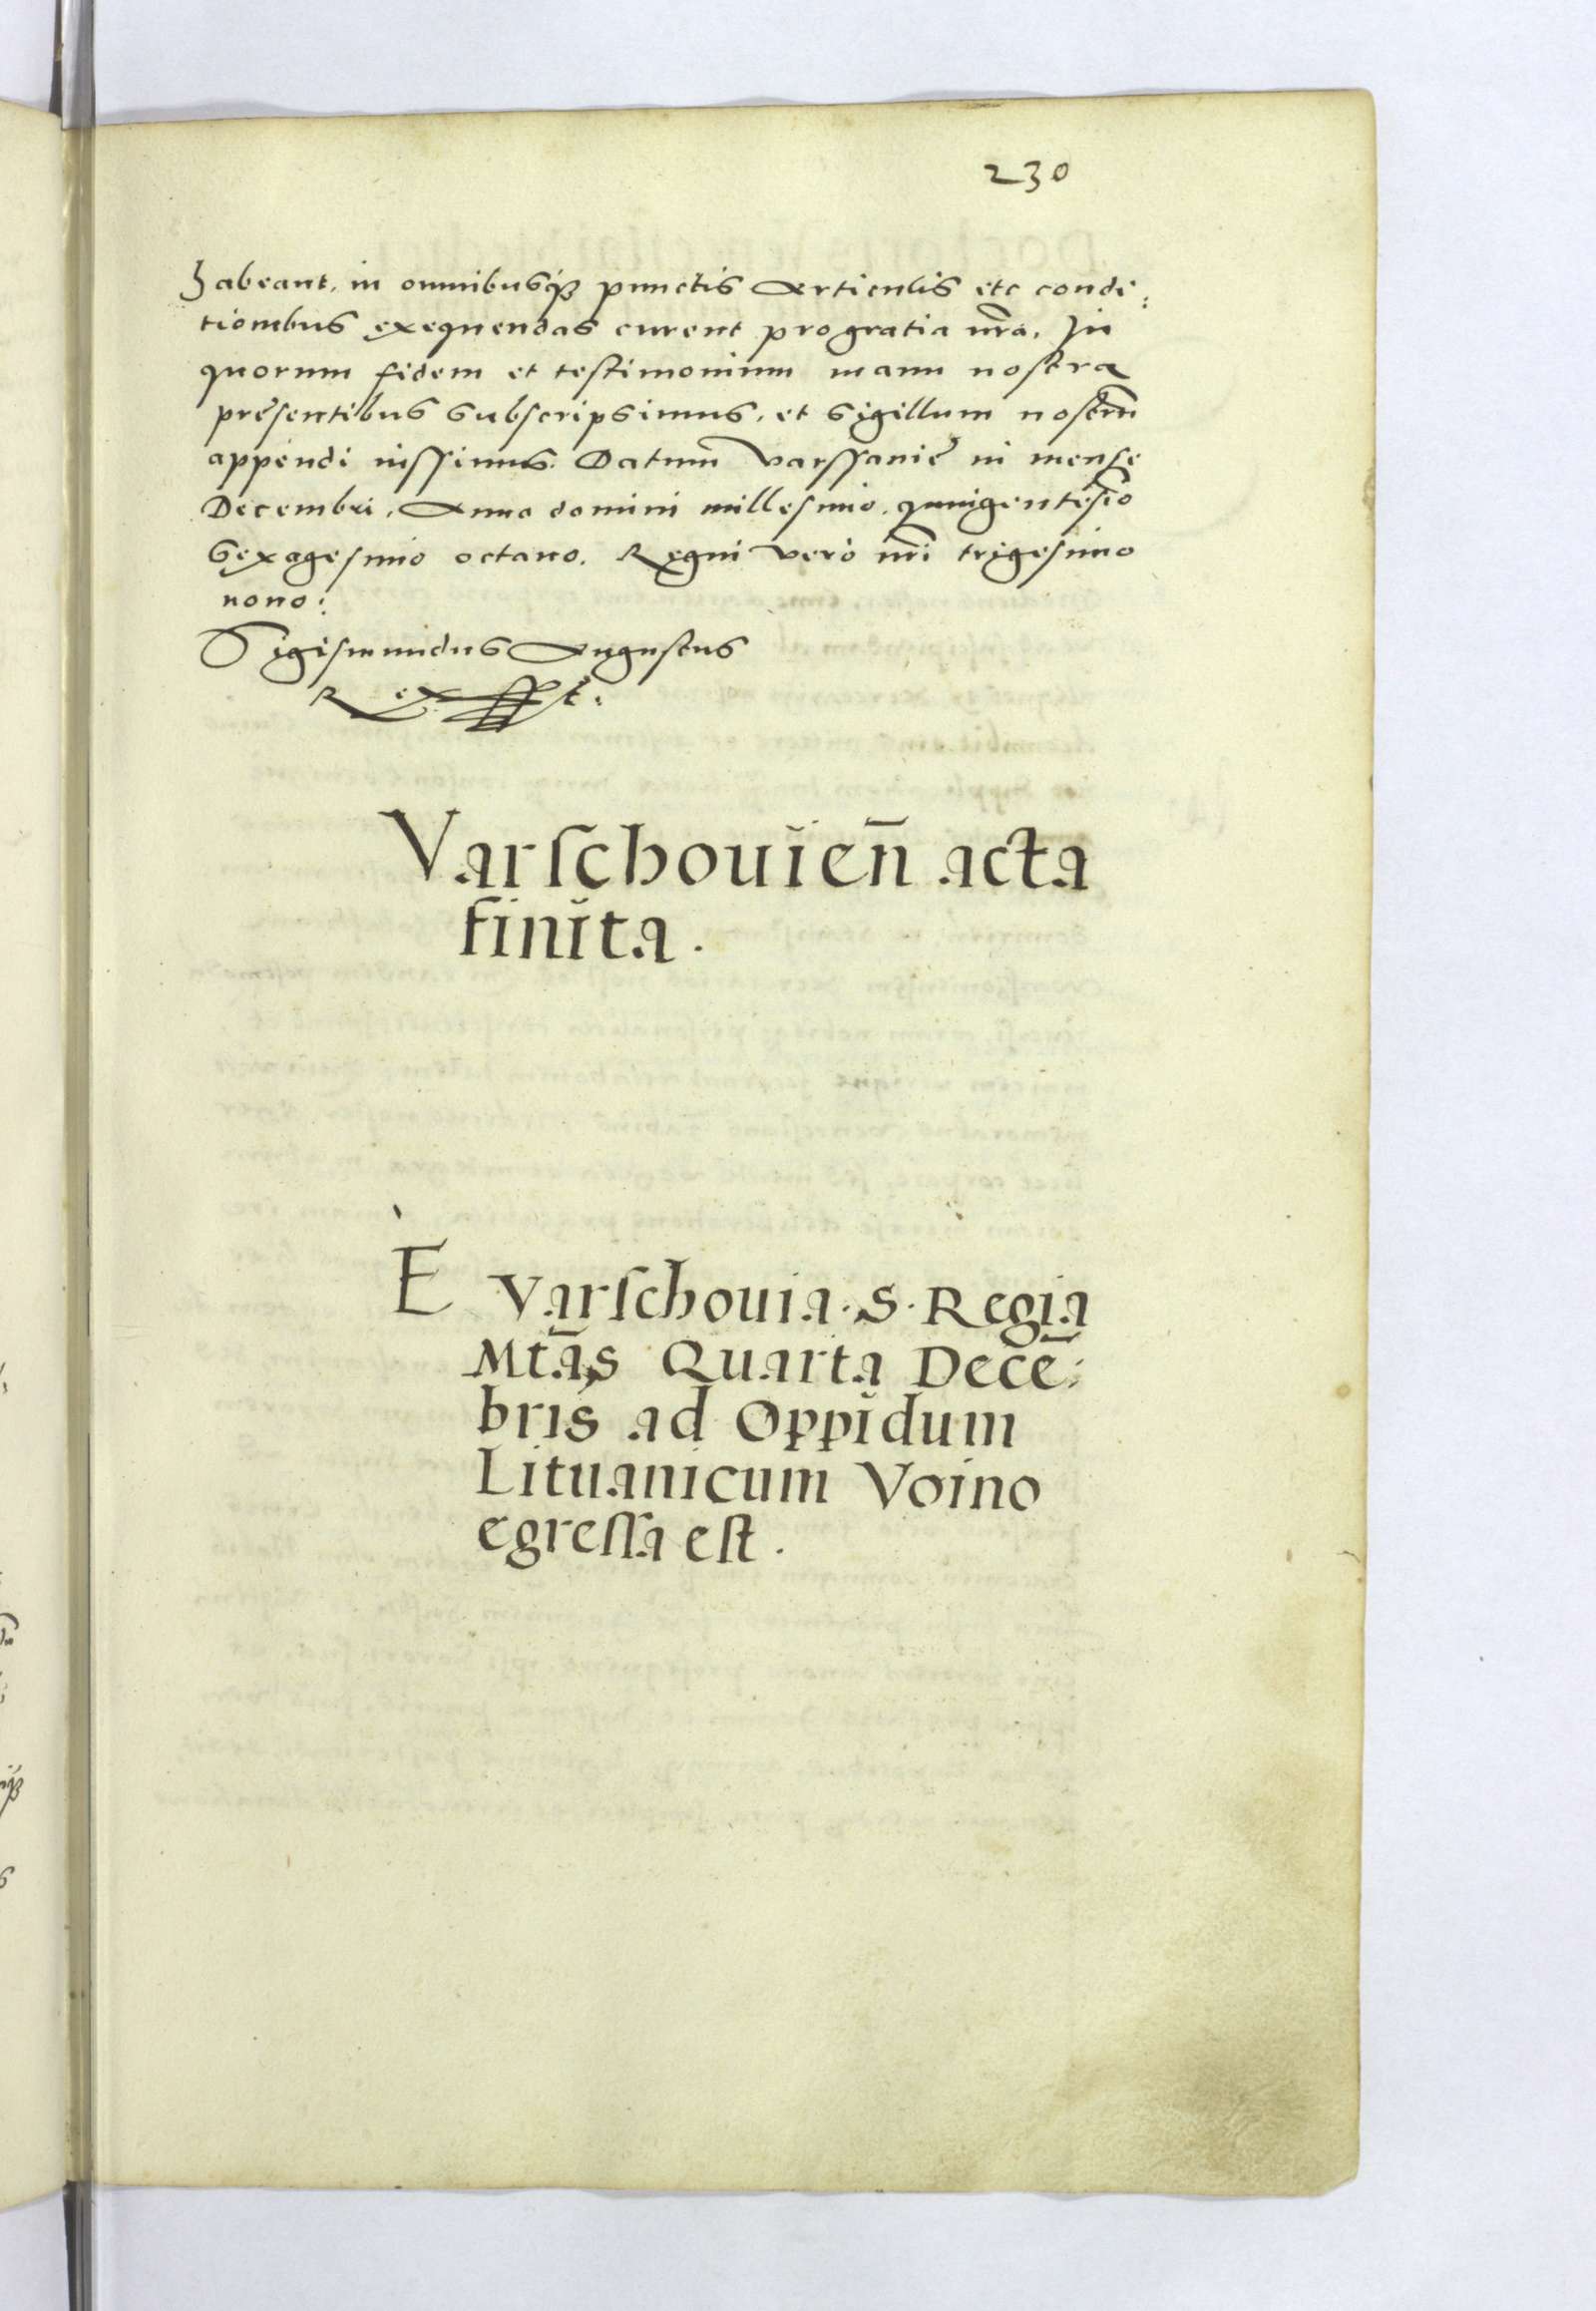 230
habeant, in omnibusq₃ punctis articulis etc condi:
tionibus exequendas curent pro gratia nr̄a. In
quorum fidem et testimonium manu nostra
presentibus subscripsimus, et sigillum nostrm̄
appendi iussimus. Datum Varssavię in mense
Decembri, Anno domini millesimo, quingentesīo
sexagesimo octavo. Regni verò nr̄i trigesimo
nono:
Sigismundus Augustus
Rex sst.
Varschouien̄ acta
finita.
E Varschouia. S. Regia
Mtās Quarta Decē:
bris ad Oppidum
Lituanicum Voino
egressa est.